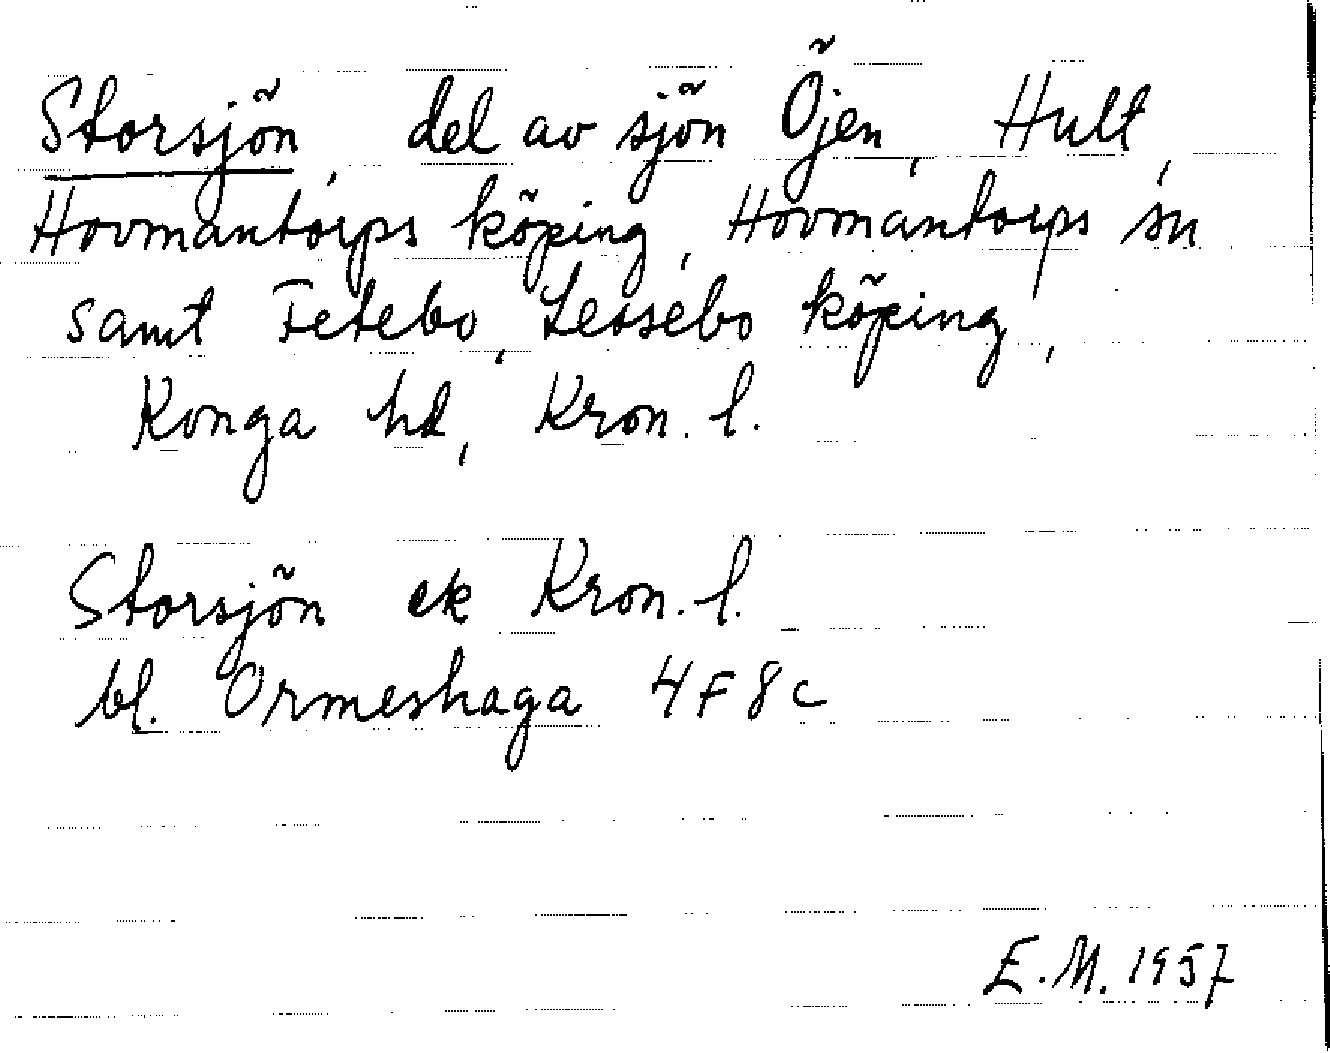 Storsjön, del av sjön Öjen, Hult,
Hovmantorps köping, Hovmantorps sn
samt Fetebo, Lessebo köping,
Konga hd, Kron. l.
Storsjön ek Kron. l.
bl. Ormeshaga 4F8c
E.M. 1957